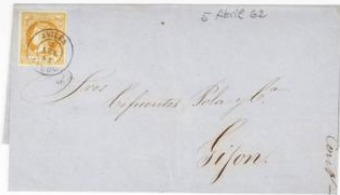 5 Abril 62
AVILES
Sres
Cifuentes Pola y Cª
Gijon.